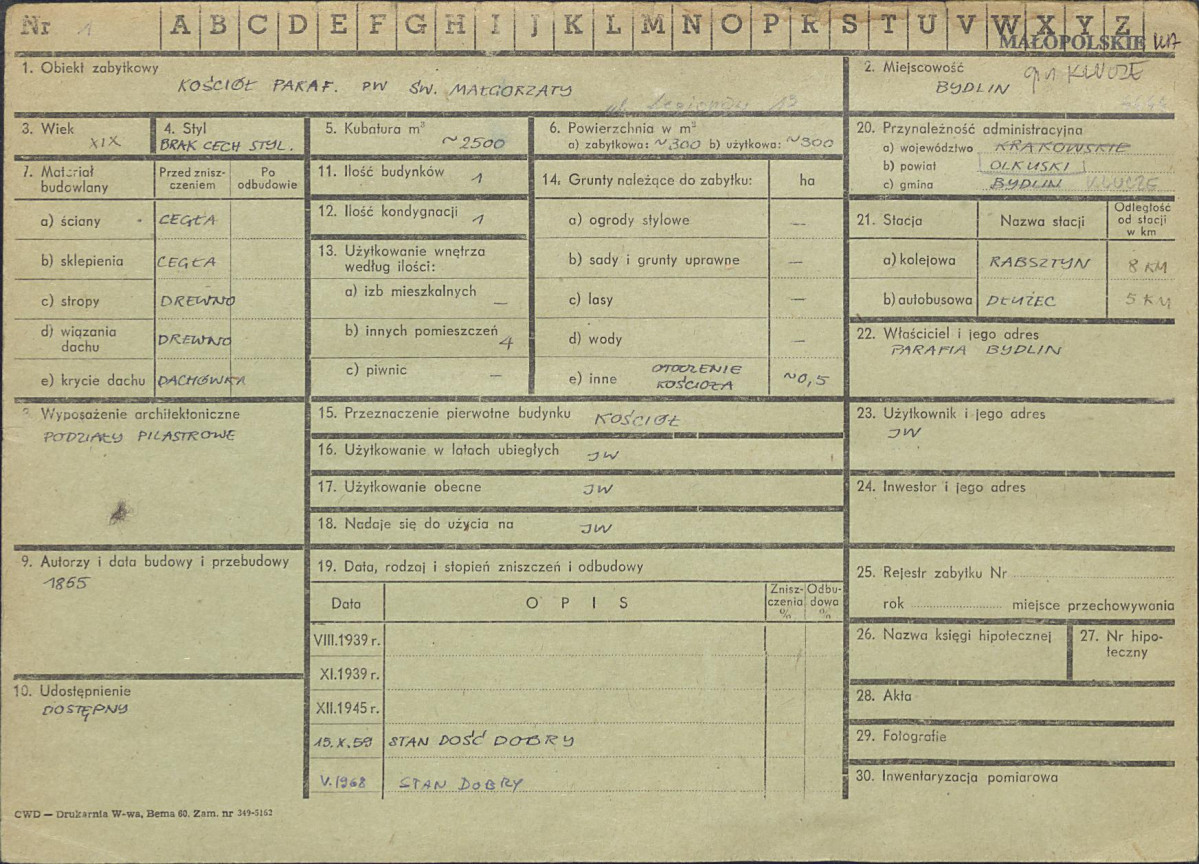 Nr 1 A B C D E F G H I J K L M N O P R S T U V W X Y Z
MAŁOPOLSKIE
1. Obiekt zabytkowy
KOŚCIÓŁ PARAF. PW ŚW. MAŁGORZATY
ul. Legionów 19
2. Miejscowość
BYDLIN gm KLUCZE
3. Wiek
XIX
4. Styl
BRAK CECH STYL.
5. Kubatura m³
~2500
6. Powierzchnia w m²
a) zabytkowa: ~300 b) użytkowa: ~300
7. Materiał budowlany
Przed zniszczeniem
Po odbudowie
a) ściany CEGŁA
b) sklepienia CEGŁA
c) stropy DREWNO
d) wiązania dachu DREWNO
e) krycie dachu DACHÓWKA
8. Wyposażenie architektoniczne
PODZIAŁY PILASTROWE
9. Autorzy i data budowy i przebudowy
1855
10. Udostępnienie
DOSTĘPNY
11. Ilość budynków 1
12. Ilość kondygnacji 1
13. Użytkowanie wnętrza
według ilości:
a) izb mieszkalnych —
b) innych pomieszczeń 4
c) piwnic —
14. Grunty należące do zabytku: ha
a) ogrody stylowe —
b) sady i grunty uprawne —
c) lasy —
d) wody —
e) inne OTOCZENIE KOŚCIOŁA ~0,5
15. Przeznaczenie pierwotne budynku KOŚCIÓŁ
16. Użytkowanie w latach ubiegłych JW
17. Użytkowanie obecne JW
18. Nadaje się do użycia na JW
19. Data, rodzaj i stopień zniszczeń i odbudowy
Data O P I S Zniszczenia % Odbudowa %
VIII.1939 r.
XI.1939 r.
XII.1945 r.
15.X.59 STAN DOŚĆ DOBRY
V.1968 STAN DOBRY
20. Przynależność administracyjna
a) województwo KRAKOWSKIE
b) powiat OLKUSKI
c) gmina BYDLIN KLUCZE
21. Stacja Nazwa stacji Odległość od stacji w km
a) kolejowa RABSZTYN 8 KM
b) autobusowa DŁUŻEC 5 KM
22. Właściciel i jego adres
PARAFIA BYDLIN
23. Użytkownik i jego adres
JW
24. Inwestor i jego adres
25. Rejestr zabytku Nr
rok miejsce przechowywania
26. Nazwa księgi hipotecznej
27. Nr hipoteczny
28. Akta
29. Fotografie
30. Inwentaryzacja pomiarowa
CWD — Drukarnia W-wa, Bema 60. Zam. nr 349-5162